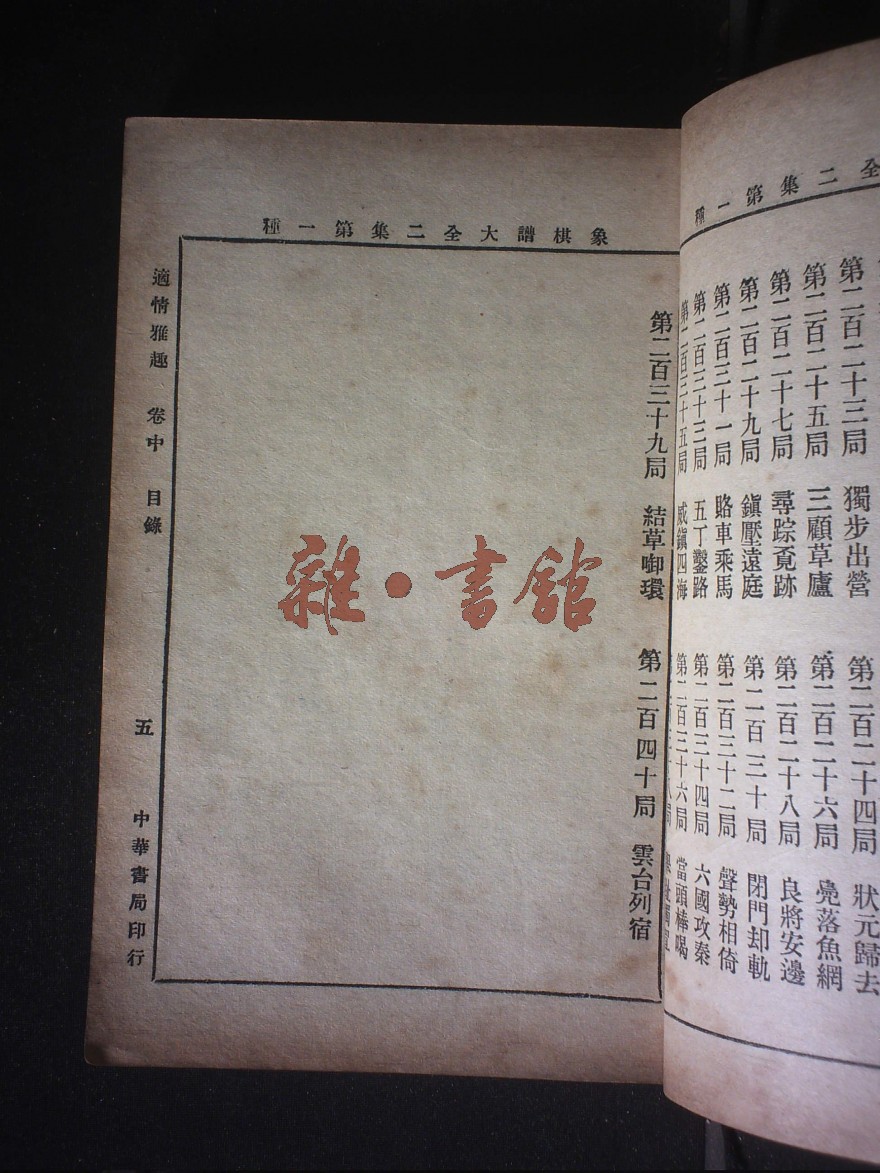 全二集第一種
第二百二十三局 獨步出營
第二百二十四局 狀元歸去
第二百二十五局 三顧草廬
第二百二十六局 鳧落魚網
第二百二十七局 尋踪覓跡
第二百二十八局 良將安邊
第二百二十九局 鎭壓遠庭
第二百三十局 閉門却軌
第二百三十一局 輅車乘馬
第二百三十二局 聲勢相倚
第二百三十三局 五丁鑿路
第二百三十四局 六國攻秦
第二百三十五局 威鎭四海
第二百三十六局 當頭棒喝
象棋譜大全二集第一種
第二百三十九局 結草啣環
第二百四十局 雲台列宿
適情雅趣 卷中 目錄
五
中華書局印行
雜·書館